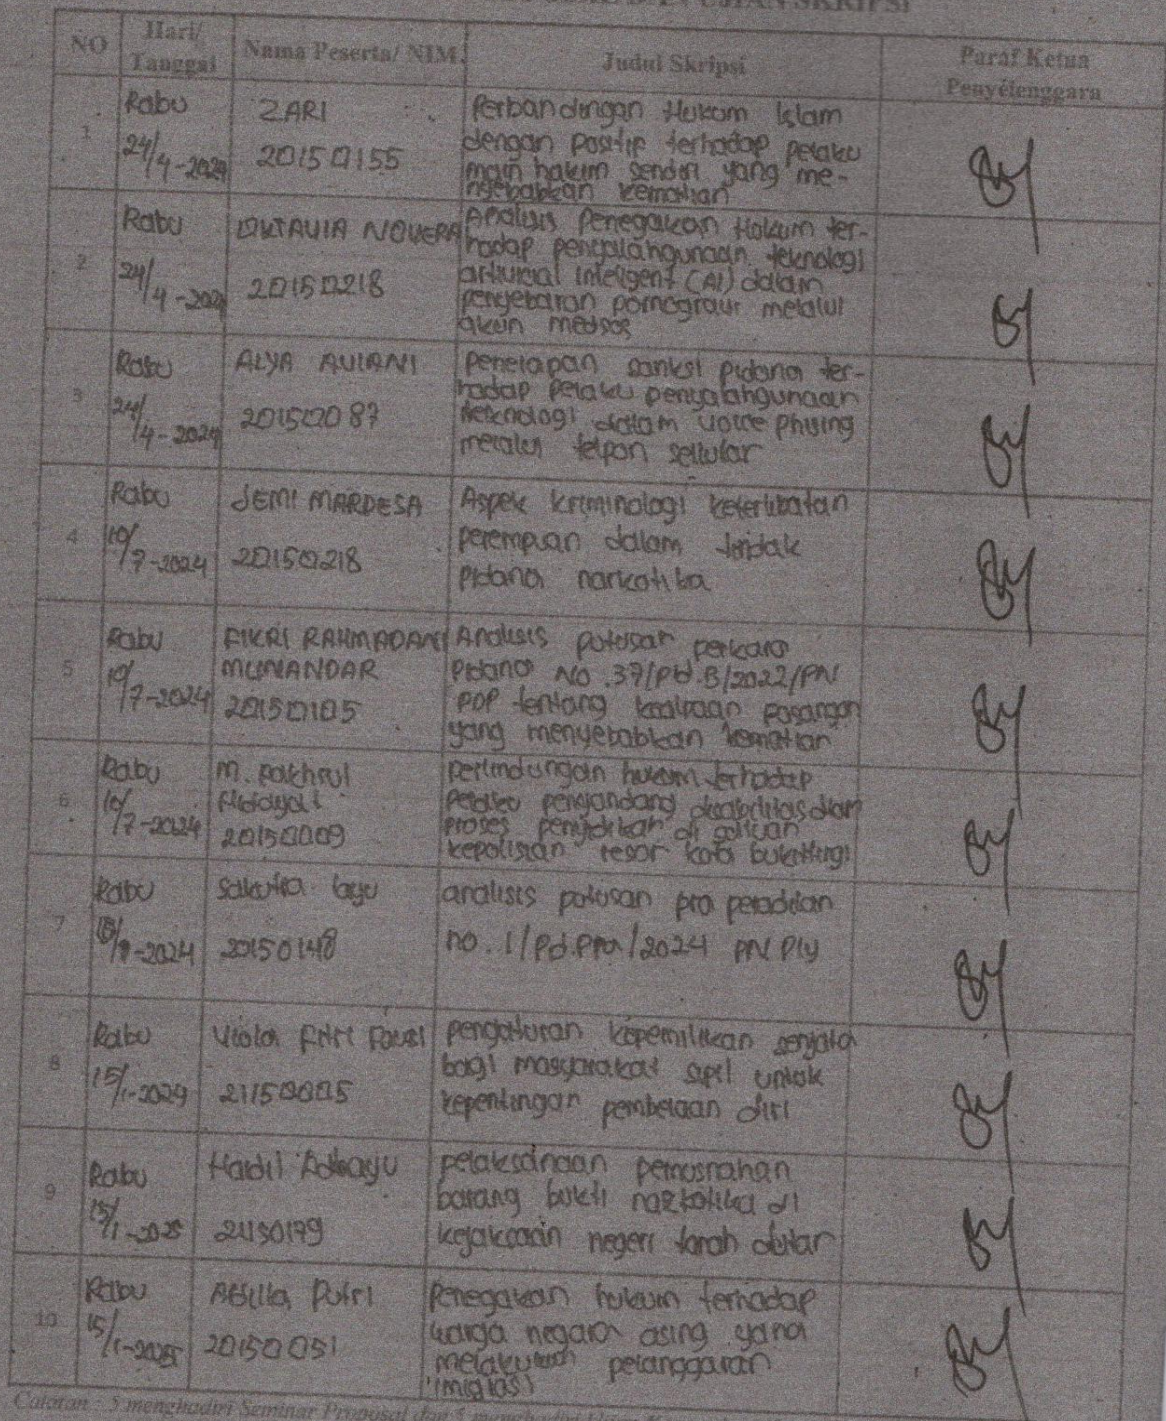 UJIAN SKRIPSI
NO
Hari/
Tanggal
Nama Peserta/ NIM.
Judul Skripsi
Paraf Ketua
Penyelenggara
1
Rabu
24/4-2024
ZARI
20150155
Perbandingan Hukum Islam
dengan positip terhadap pelaku
main hakim sendiri yang me-
ngebabkan kematian
2
Rabu
24/4-2024
OKTAVIA NOVERA
20150218
Analisis Penegakan Hukum ter-
hadap penyalahgunaan teknologi
artificial inteligent (AI) dalam
penyebaran pornografi melalui
akun medsos
3
Rabu
24/4-2024
ALYA AULANI
20150087
penerapan sanksi pidana ter-
hadap pelaku penyalahgunaan
teknologi dalam voice phising
melalui telpon sellular
4
Rabu
10/7-2024
JEMI MARDESA
20150218
Aspek kriminologi keterlibatan
perempuan dalam tindak
pidana narkotika
5
Rabu
10/7-2024
FIKRI RAHMADANI
MUNANDAR
20150105
Analisis putusan perkara
Pidana No.37/Pid.B/2022/PN
PDP tentang kealpaan pasangan
yang menyebabkan kematian
6
Rabu
10/7-2024
M. Fakhrul
Hidayat
20150009
perlindungan hukum terhadap
pelaku penyandang disabilitas dlam
proses penyidikan di satuan
kepolisian resor kota bukittingi
7
Rabu
-2024
ayu
20150148
analisis putusan pra peradilan
no. 1/Pid.Pra/2024 PN Ply
8
Rabu
15/1-2029
Viola Fitri
21150005
pengaturan kepemilikan senjata
bagi masyarakat sipil untuk
kepentingan pembelaan diri
9
Rabu
15/1-2025
21150179
pelaksanaan pemusnahan
barang bukti narkotika di
kejaksaan negeri tanah datar
10
Rabu
15/1-2025
Putri
20150051
Penegakan hukum terhadap
warga negara asing yang
melakukan pelanggaran
imigrasi
Catatan : 5 menghadiri Seminar Proposal dan 5 menghadiri Ujian